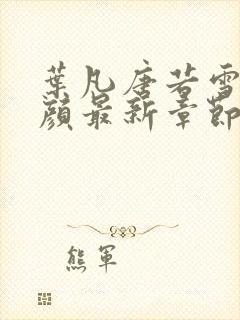 葉凡唐若雪
顏最新章節
熊軍